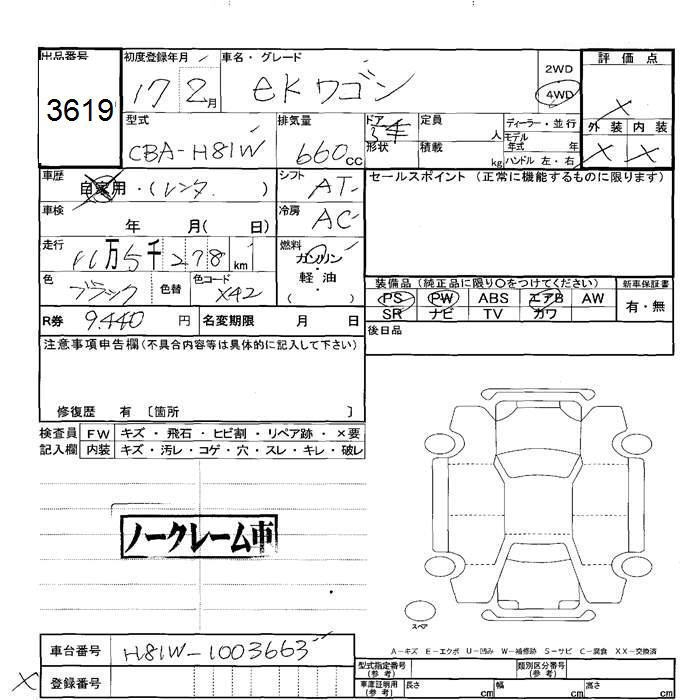 出品番号 初度登録年月 車名・グレード 2WD 評価点
3619 17 2月 eKワゴン 4WD X
型式 排気量 ドア 定員 人 ディーラー・並行 外装 内装
CBA-H81W 660cc 形状 積載 kg モデル年式 年 X X
ハンドル 左・右
車歴 自家用・(レンタ ) シフト AT セールスポイント (正常に機能するものに限ります)
車検 年 月( 日) 冷房 AC
走行 11万5千278km 燃料 ガソリン・軽油( )
色 ブラック 色替 色コード X42 装備品 (純正品に限り○をつけてください) 新車保証書
PS PW ABS エアB AW 有・無
SR ナビ TV カワ
R券 9.440円 名変期限 月 日 後日品
注意事項申告欄(不具合内容等は具体的に記入して下さい)
修復歴 有 〔箇所 〕
検査員 FW キズ・飛石・ヒビ割・リペア跡・×要
記入欄 内装 キズ・汚レ・コゲ・穴・スレ・キレ・破レ
ノークレーム車
スペア
A-キズ E-エクボ U-凹み W-補修跡 S-サビ C-腐食 XX-交換済
車台番号 H81W-1003663
登録番号
型式指定番号(参考) 類別区分番号(参考)
車庫証明用(参考) 長さ cm 幅 cm 高さ cm
X